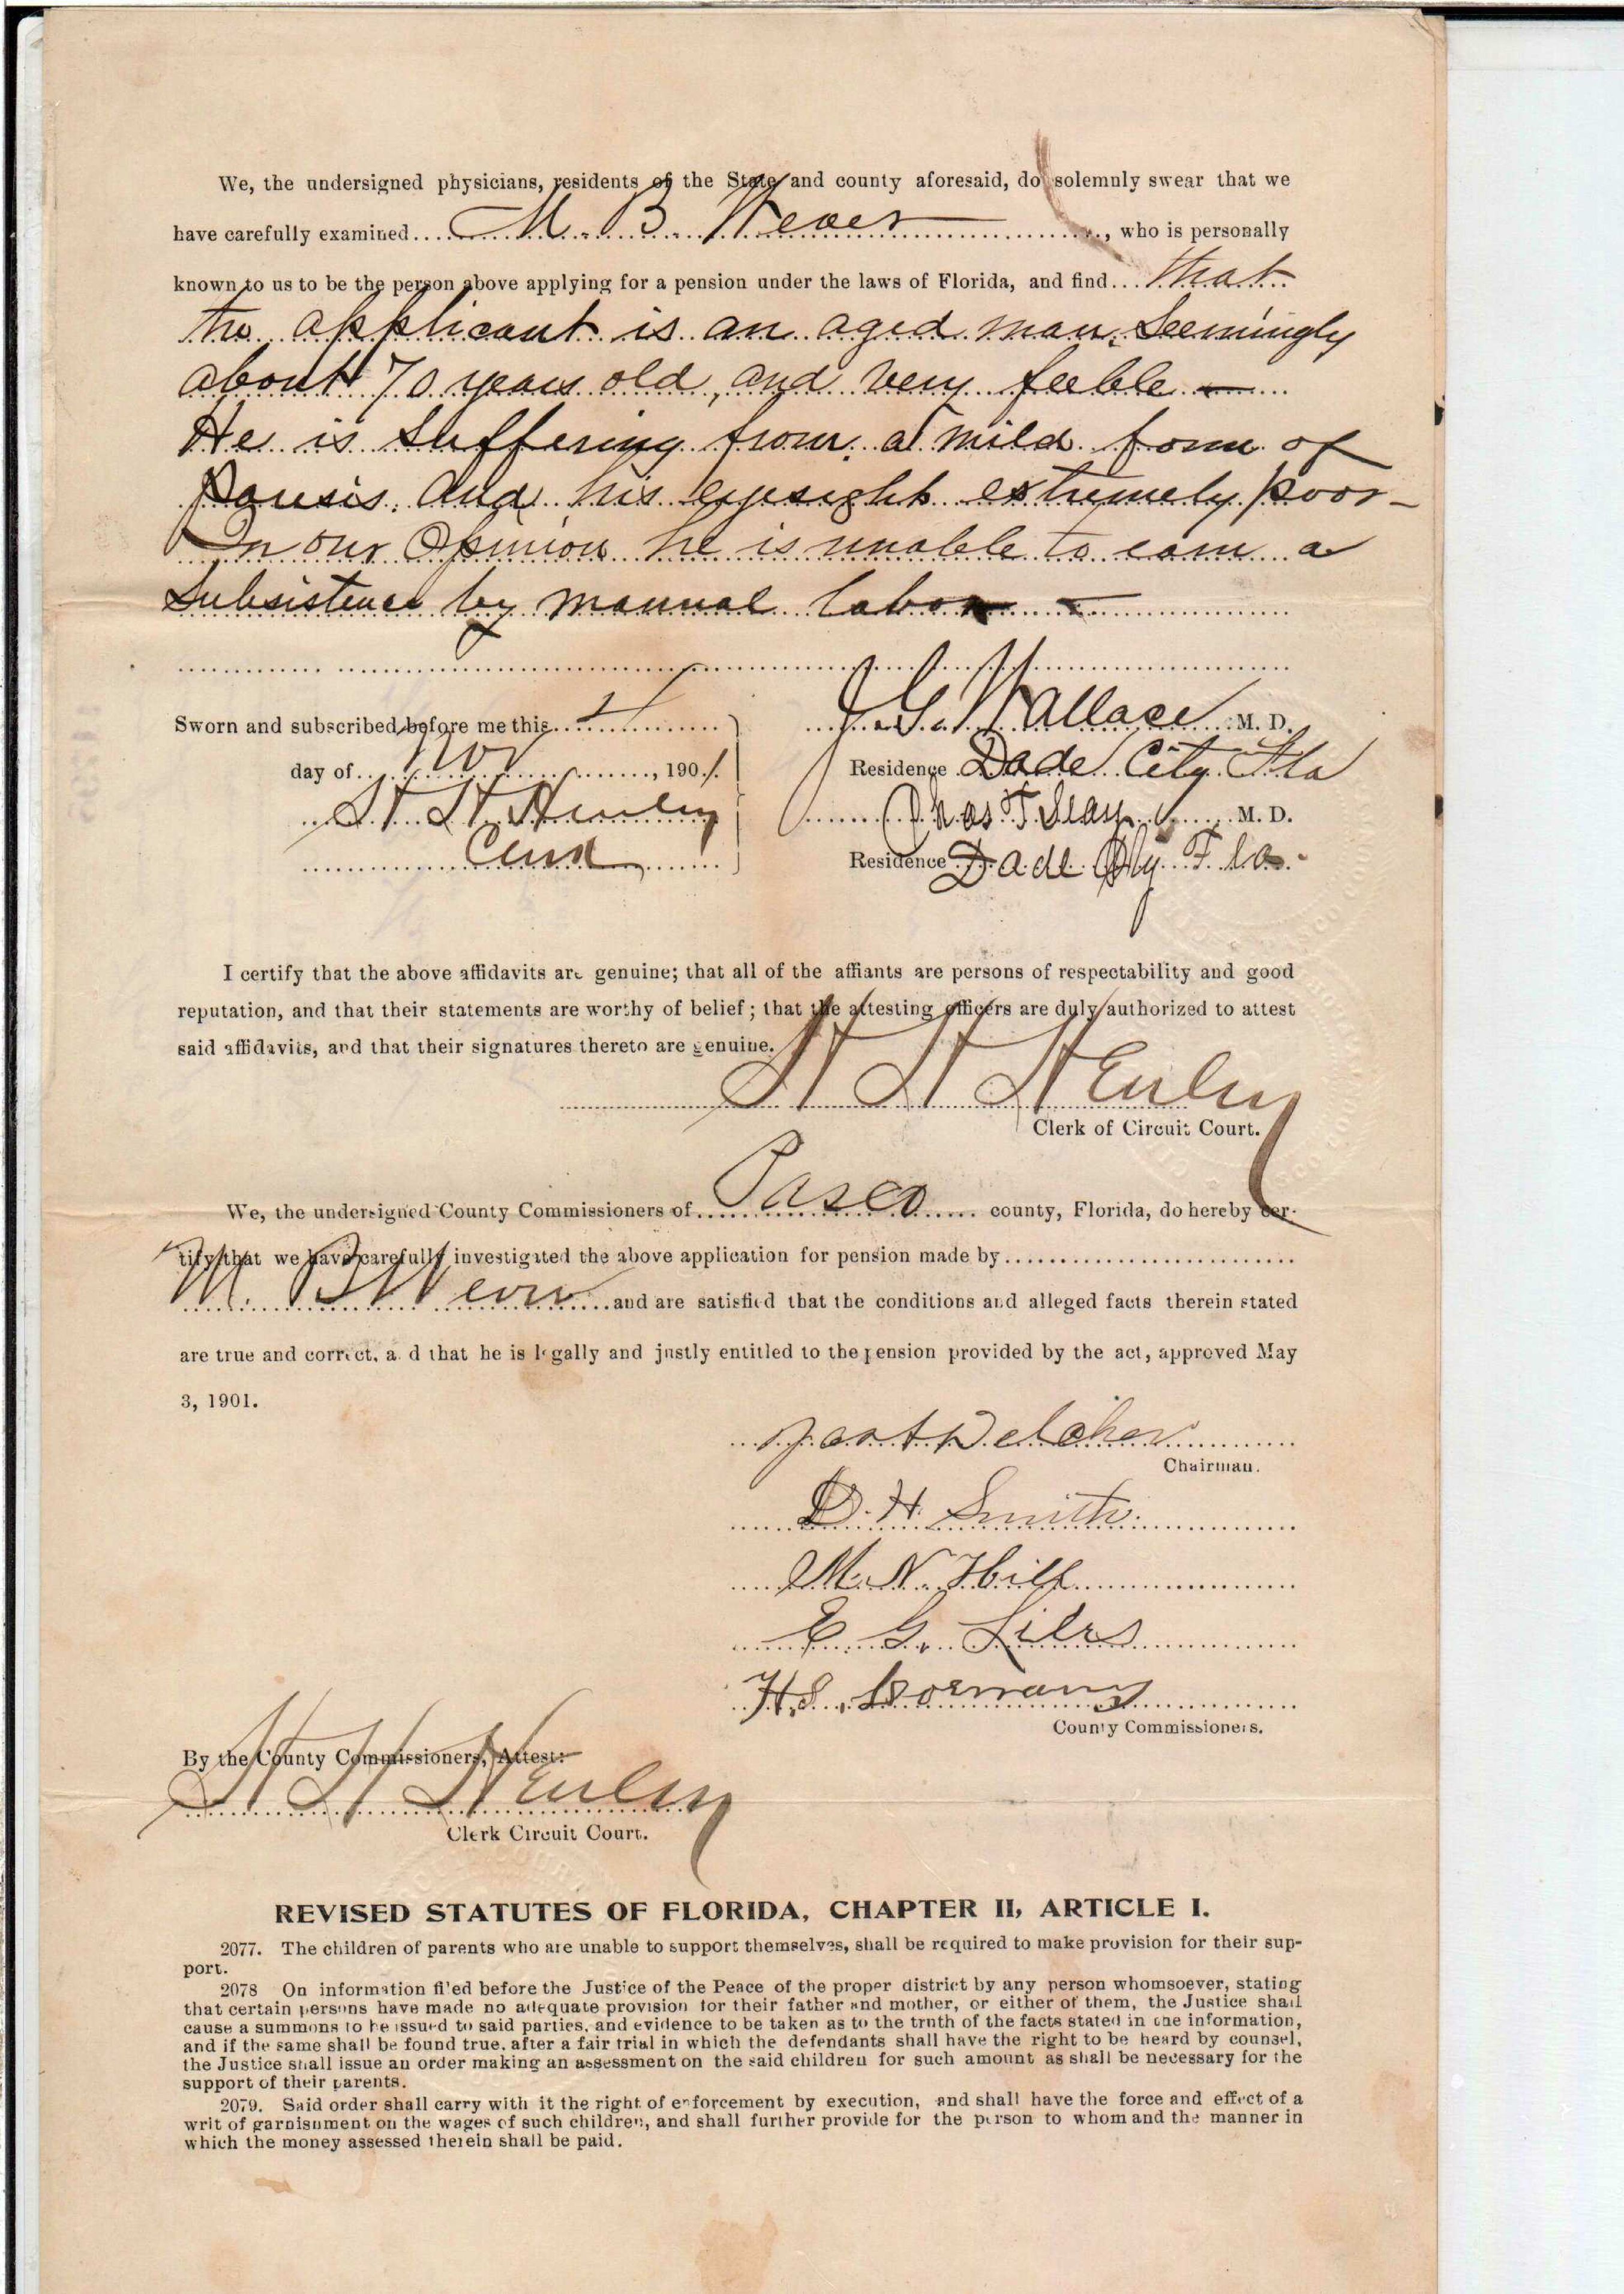 We, the undersigned physicians, residents of the State and county aforesaid, do solemnly swear that we
have carefully examined M. B. Wever, who is personally
known to us to be the person above applying for a pension under the laws of Florida, and find that
the applicant is an aged man, Seemingly
about 70 years old, and very feeble —
He is Suffering from a mild form of
Paresis. And his eyesight extremely poor —
In our Opinion he is unable to earn a
Subsistence by manual labor —
Sworn and subscribed before me this 4
J. G. Wallace M. D.
day of Nov, 1901.
Residence Dade City Fla
H. H. Henley
Chas F. M. D.
Clerk
Residence Dade City Fla.
I certify that the above affidavits are genuine; that all of the affiants are persons of respectability and good
reputation, and that their statements are worthy of belief; that the attesting officers are duly authorized to attest
said affidavits, and that their signatures thereto are genuine.
H H Henley
Clerk of Circuit Court.
We, the undersigned County Commissioners of Pasco county, Florida, do hereby cer-
tify that we have carefully investigated the above application for pension made by
M. B. Wever and are satisfied that the conditions and alleged facts therein stated
are true and correct, a d that he is legally and justly entitled to the pension provided by the act, approved May
3, 1901.
Chairman.
D. H. Smith
M. N. Hill
E G. Liles
H. S.
County Commissioners.
By the County Commissioners, Attest:
H H Henley
Clerk Circuit Court.
REVISED STATUTES OF FLORIDA, CHAPTER II, ARTICLE I.
2077. The children of parents who are unable to support themselves, shall be required to make provision for their sup-
port.
2078 On information filed before the Justice of the Peace of the proper district by any person whomsoever, stating
that certain persons have made no adequate provision for their father and mother, or either of them, the Justice shall
cause a summons to be issued to said parties, and evidence to be taken as to the truth of the facts stated in the information,
and if the same shall be found true, after a fair trial in which the defendants shall have the right to be heard by counsel,
the Justice shall issue an order making an assessment on the said children for such amount as shall be necessary for the
support of their parents.
2079. Said order shall carry with it the right of enforcement by execution, and shall have the force and effect of a
writ of garnishment on the wages of such children, and shall further provide for the person to whom and the manner in
which the money assessed therein shall be paid.